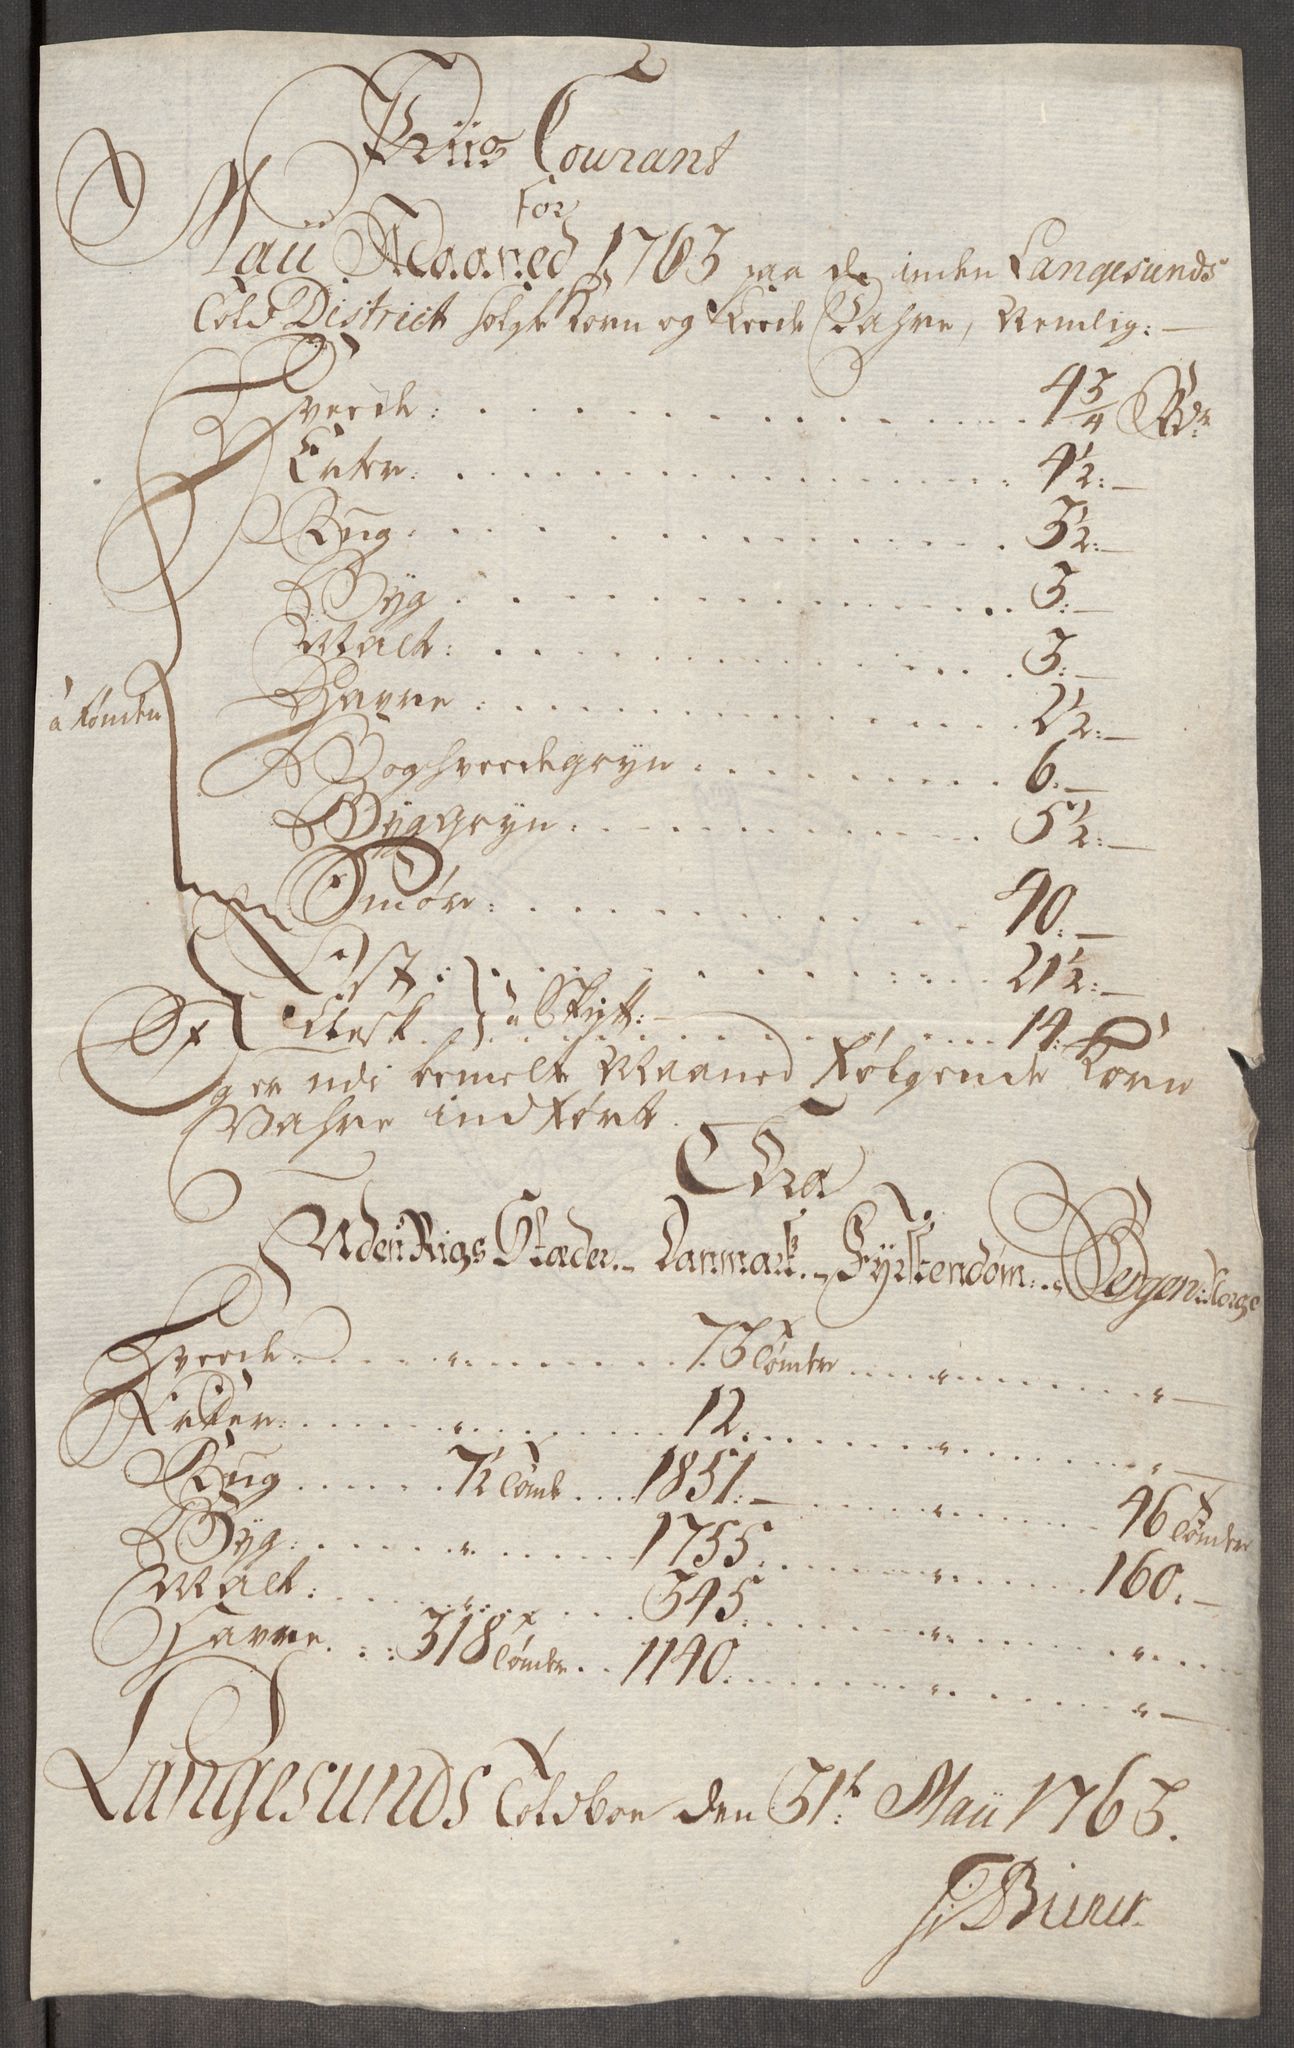 Priis Courant
For
Maii Maaned 1763 paa de inden Langesunds
Told District solgte Korn og Feede Vahre, Nemlig:
Hveede: 4 3/4 Rdr
Erter: 4 1/2:
Rug: 3 1/2:
Byg 3:
Malt: 3:
Havre: 2 1/2:
à Tønden
Boghveedegryn 6:
Byggryn: 5 1/2:
Smør: 40:
Ost: 21 1/2:
Flesk à Skpt: 14:
Og er udi bemelte Maaned følgende Korn
Vahre indført.
Fra
Uden Rigs Stæder. Danmark. Fyrstendøm: Bergen: Norge
Hveede: " 73 Tønder " "
Erter: " 12. " "
Rug 7 1/2 Tønde 1851: " 46 Tønder
Byg: " 1755: " 160.
Malt: " 345: " "
Havre. 318 Tønder 1140: " "
Langesunds Toldboe den 31t: Maii 1763.